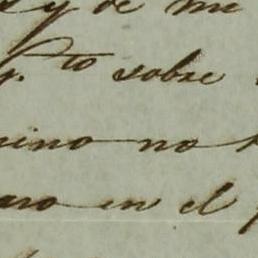 y de mi
y.to sobre
ino no
aro en el